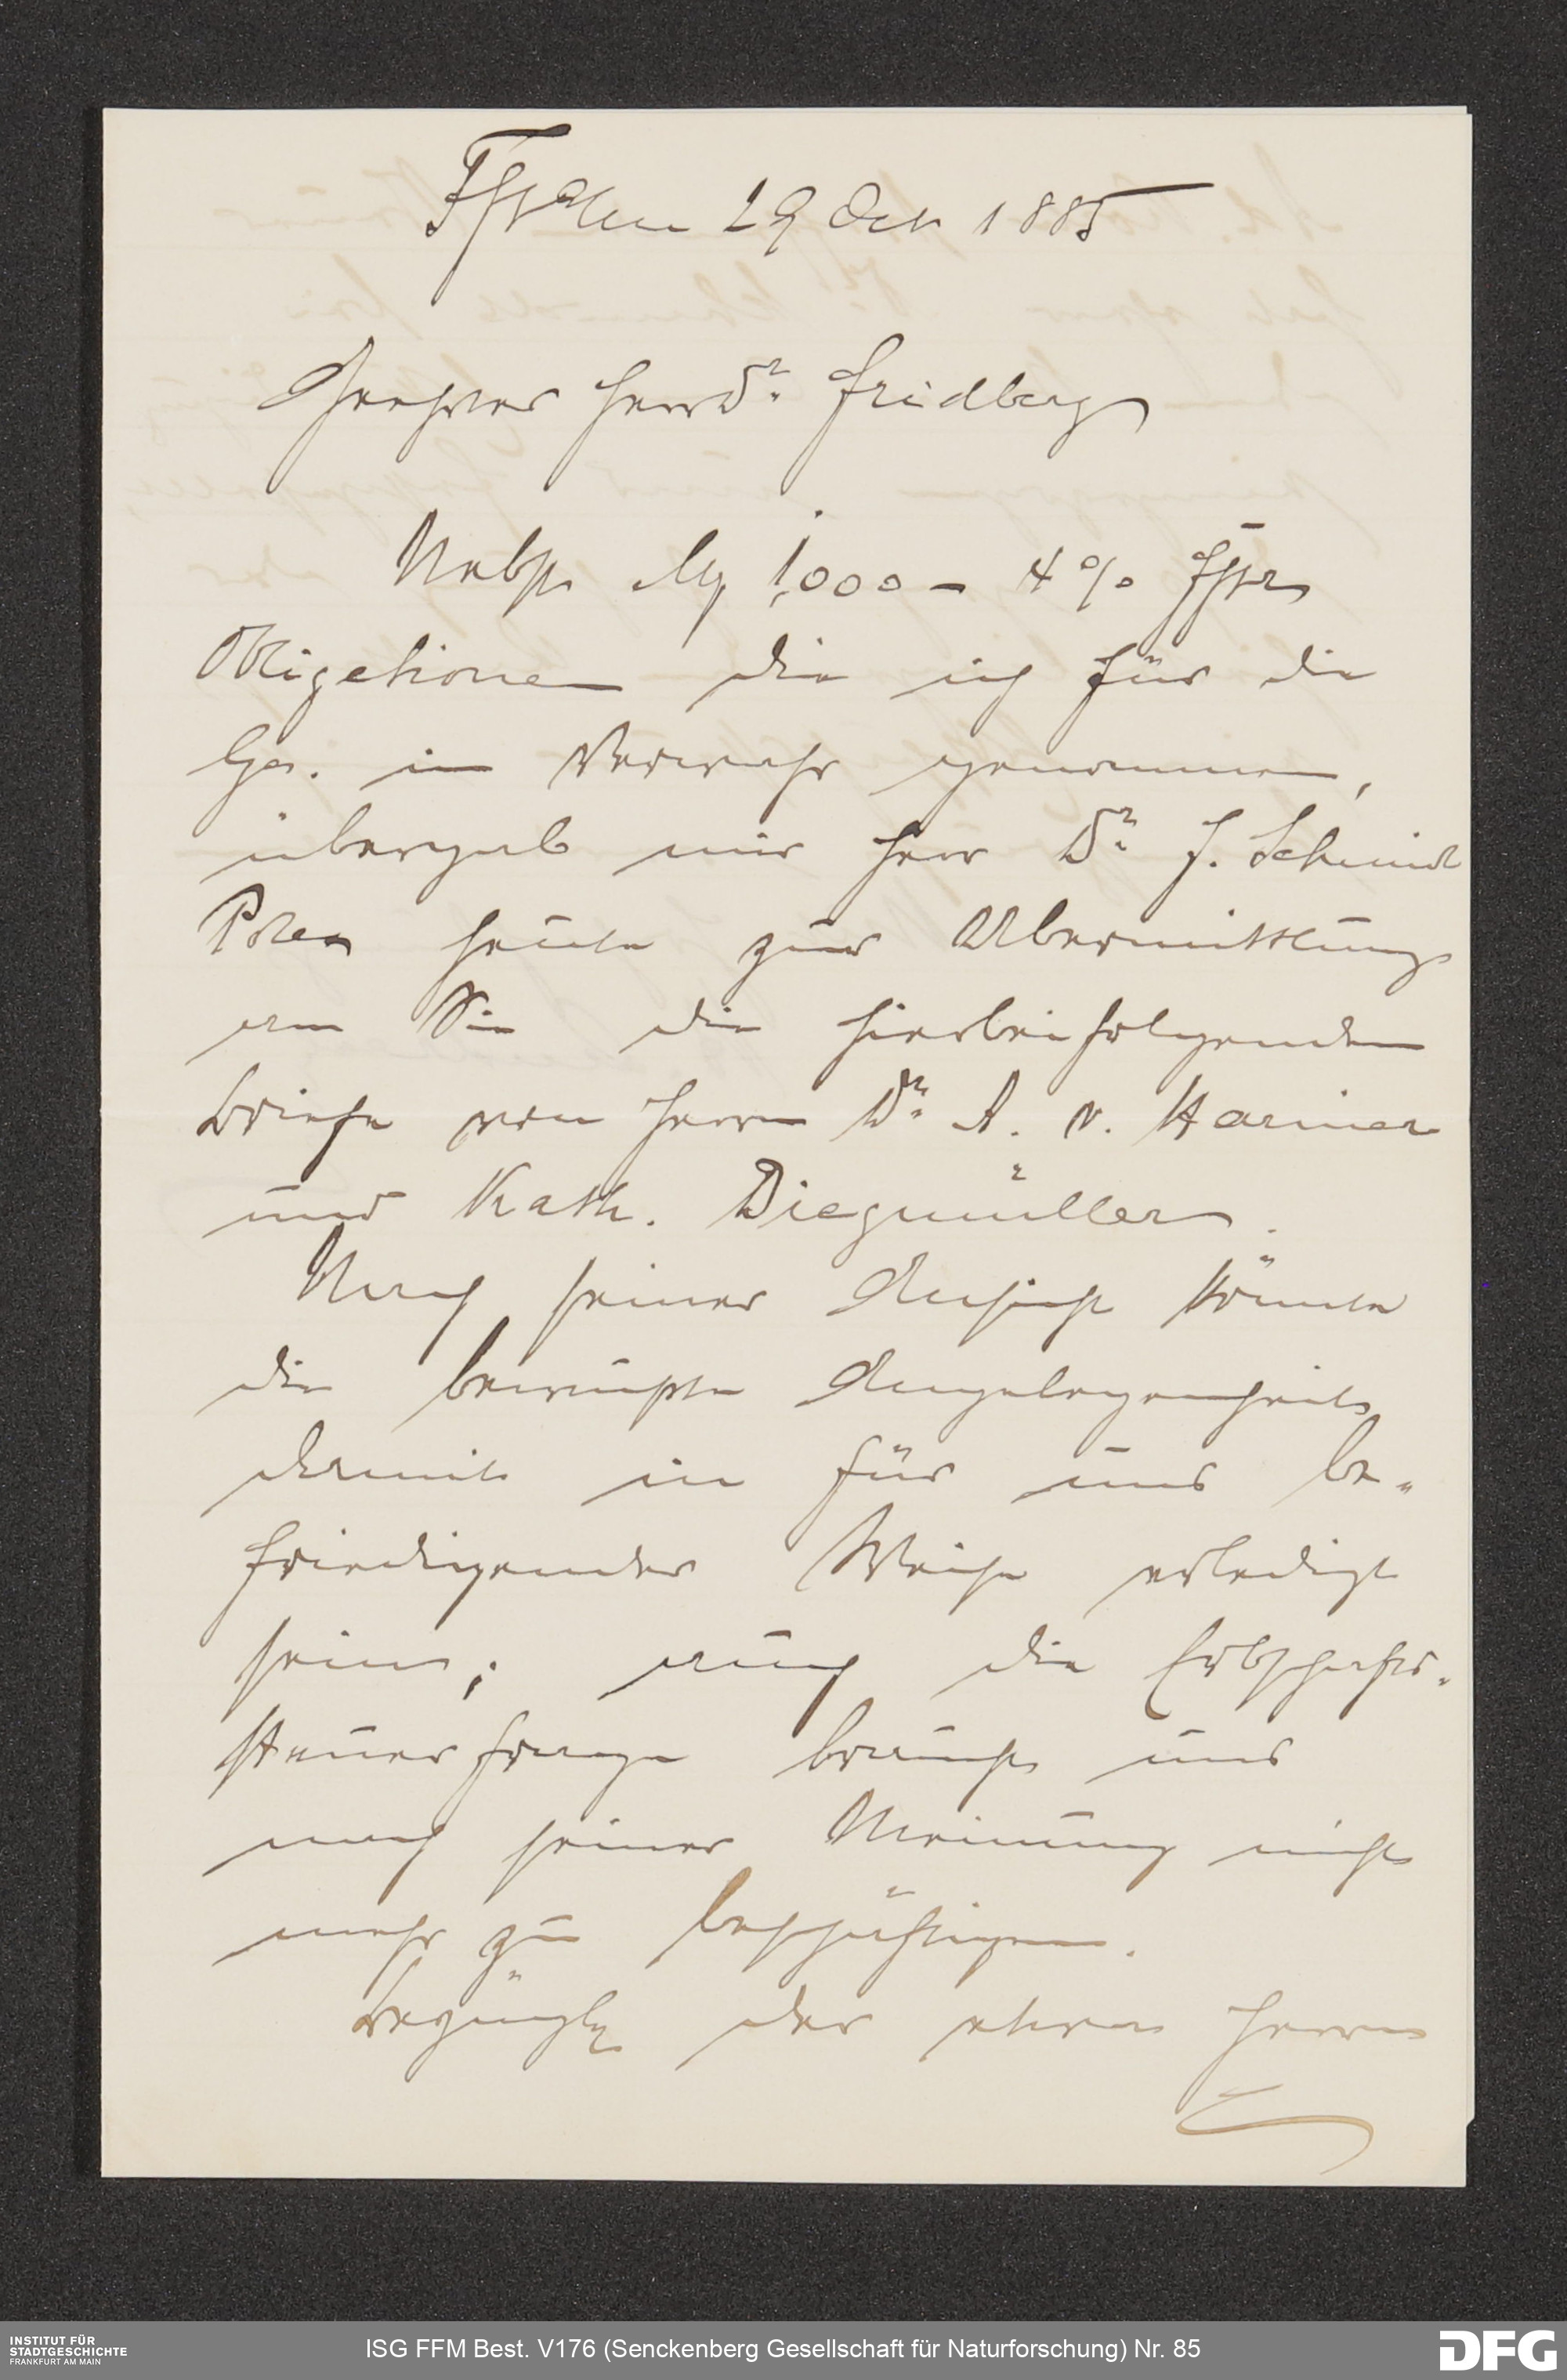 Ffst a/m 29 Oct 1885
Geehrter Herr Dr. Fridberg
Nebst M 1,000 – 4 % Ffter
Obligationen die ich für die
Ges. in Verwahr genommen,
übergab mir Herr Dr. J. Schmidt
Polex heute zur Übermittlung
an Sie die hierbeifolgenden
Briefe von Herrn Dr. A. v. Harnier
und Kath. Diegmüller.
Nach seiner Ansicht könnte
die bewußte Angelegenheit
damit in für uns be-
friedigender Weise erledigt
sein; auch die Erbschafts-
steuerfrage braucht uns
nach seiner Meinung nicht
mehr zu beschäftigen.
Bezüglich der etwa Herrn
INSTITUT FÜR
STADTGESCHICHTE
FRANKFURT AM MAIN
ISG FFM Best. V176 (Senckenberg Gesellschaft für Naturforschung) Nr. 85
DFG